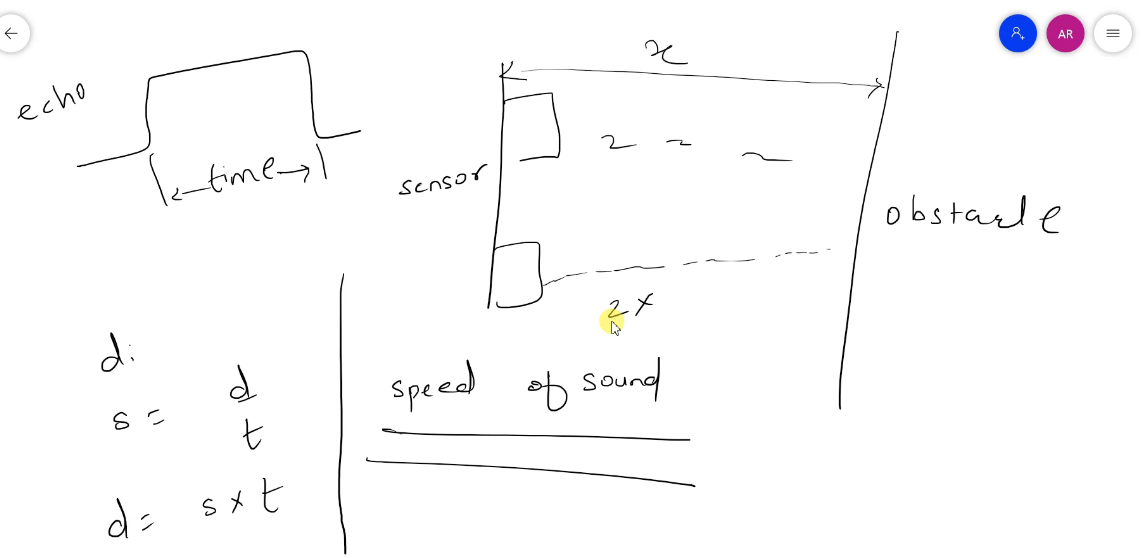 AR
x
echo
time
sensor
obstacle
2x
d:
s = d
t
speed of sound
d = s x t